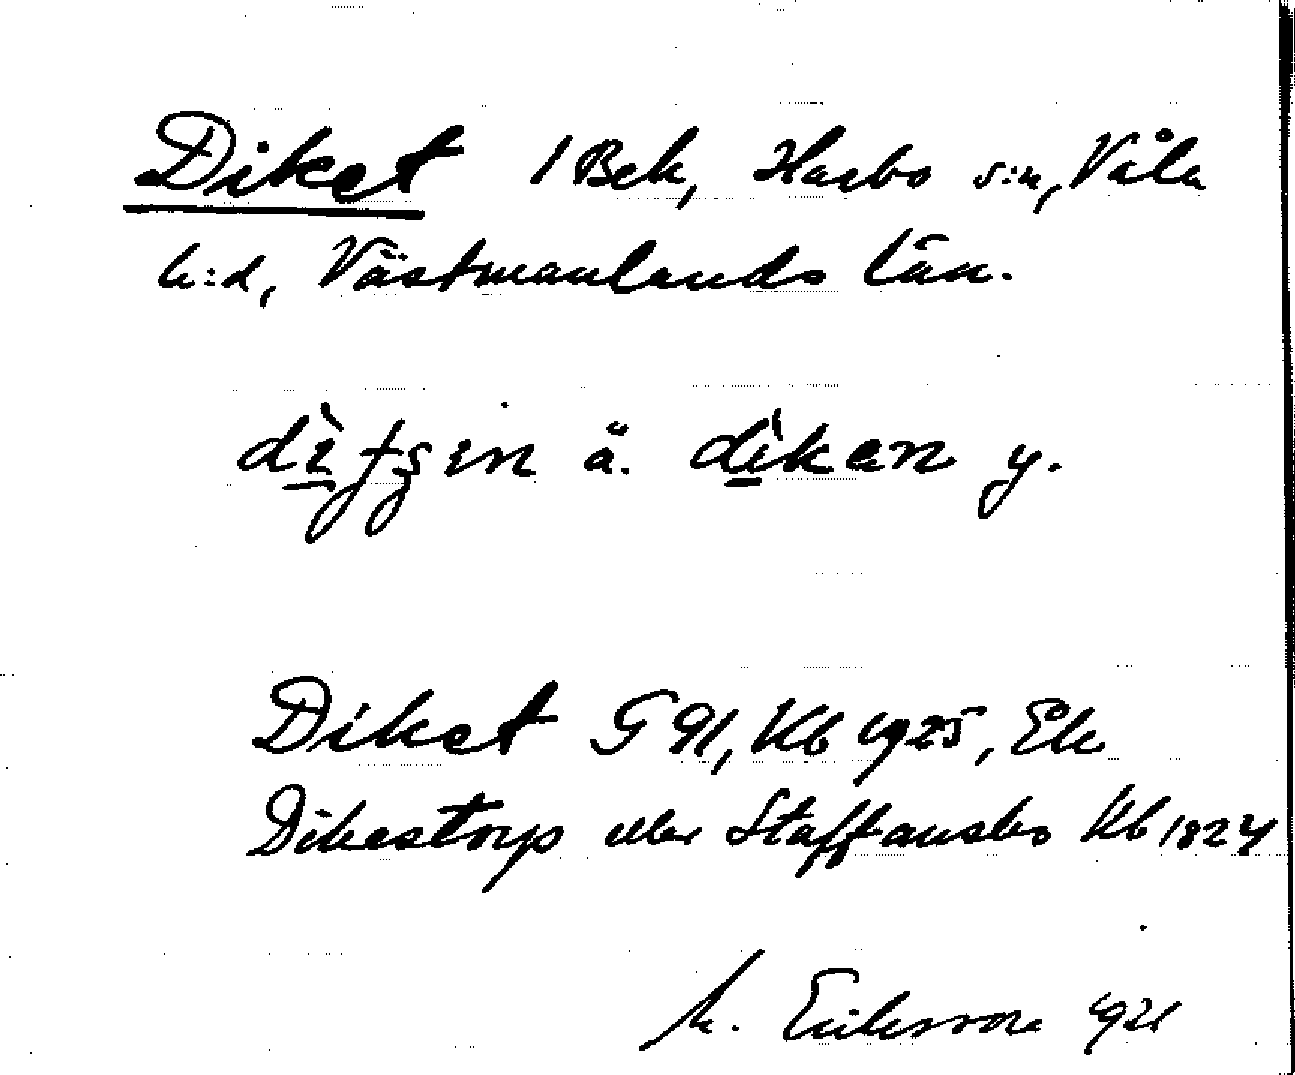 Diket / Bek, Harbo s:n, Våla
h:d, Västmanlands län.
ä. dikan y.
Diket G 91, Kb 1925, Ek
Dikestorp eller Staffansbo Kb 1824
M. Eriksson